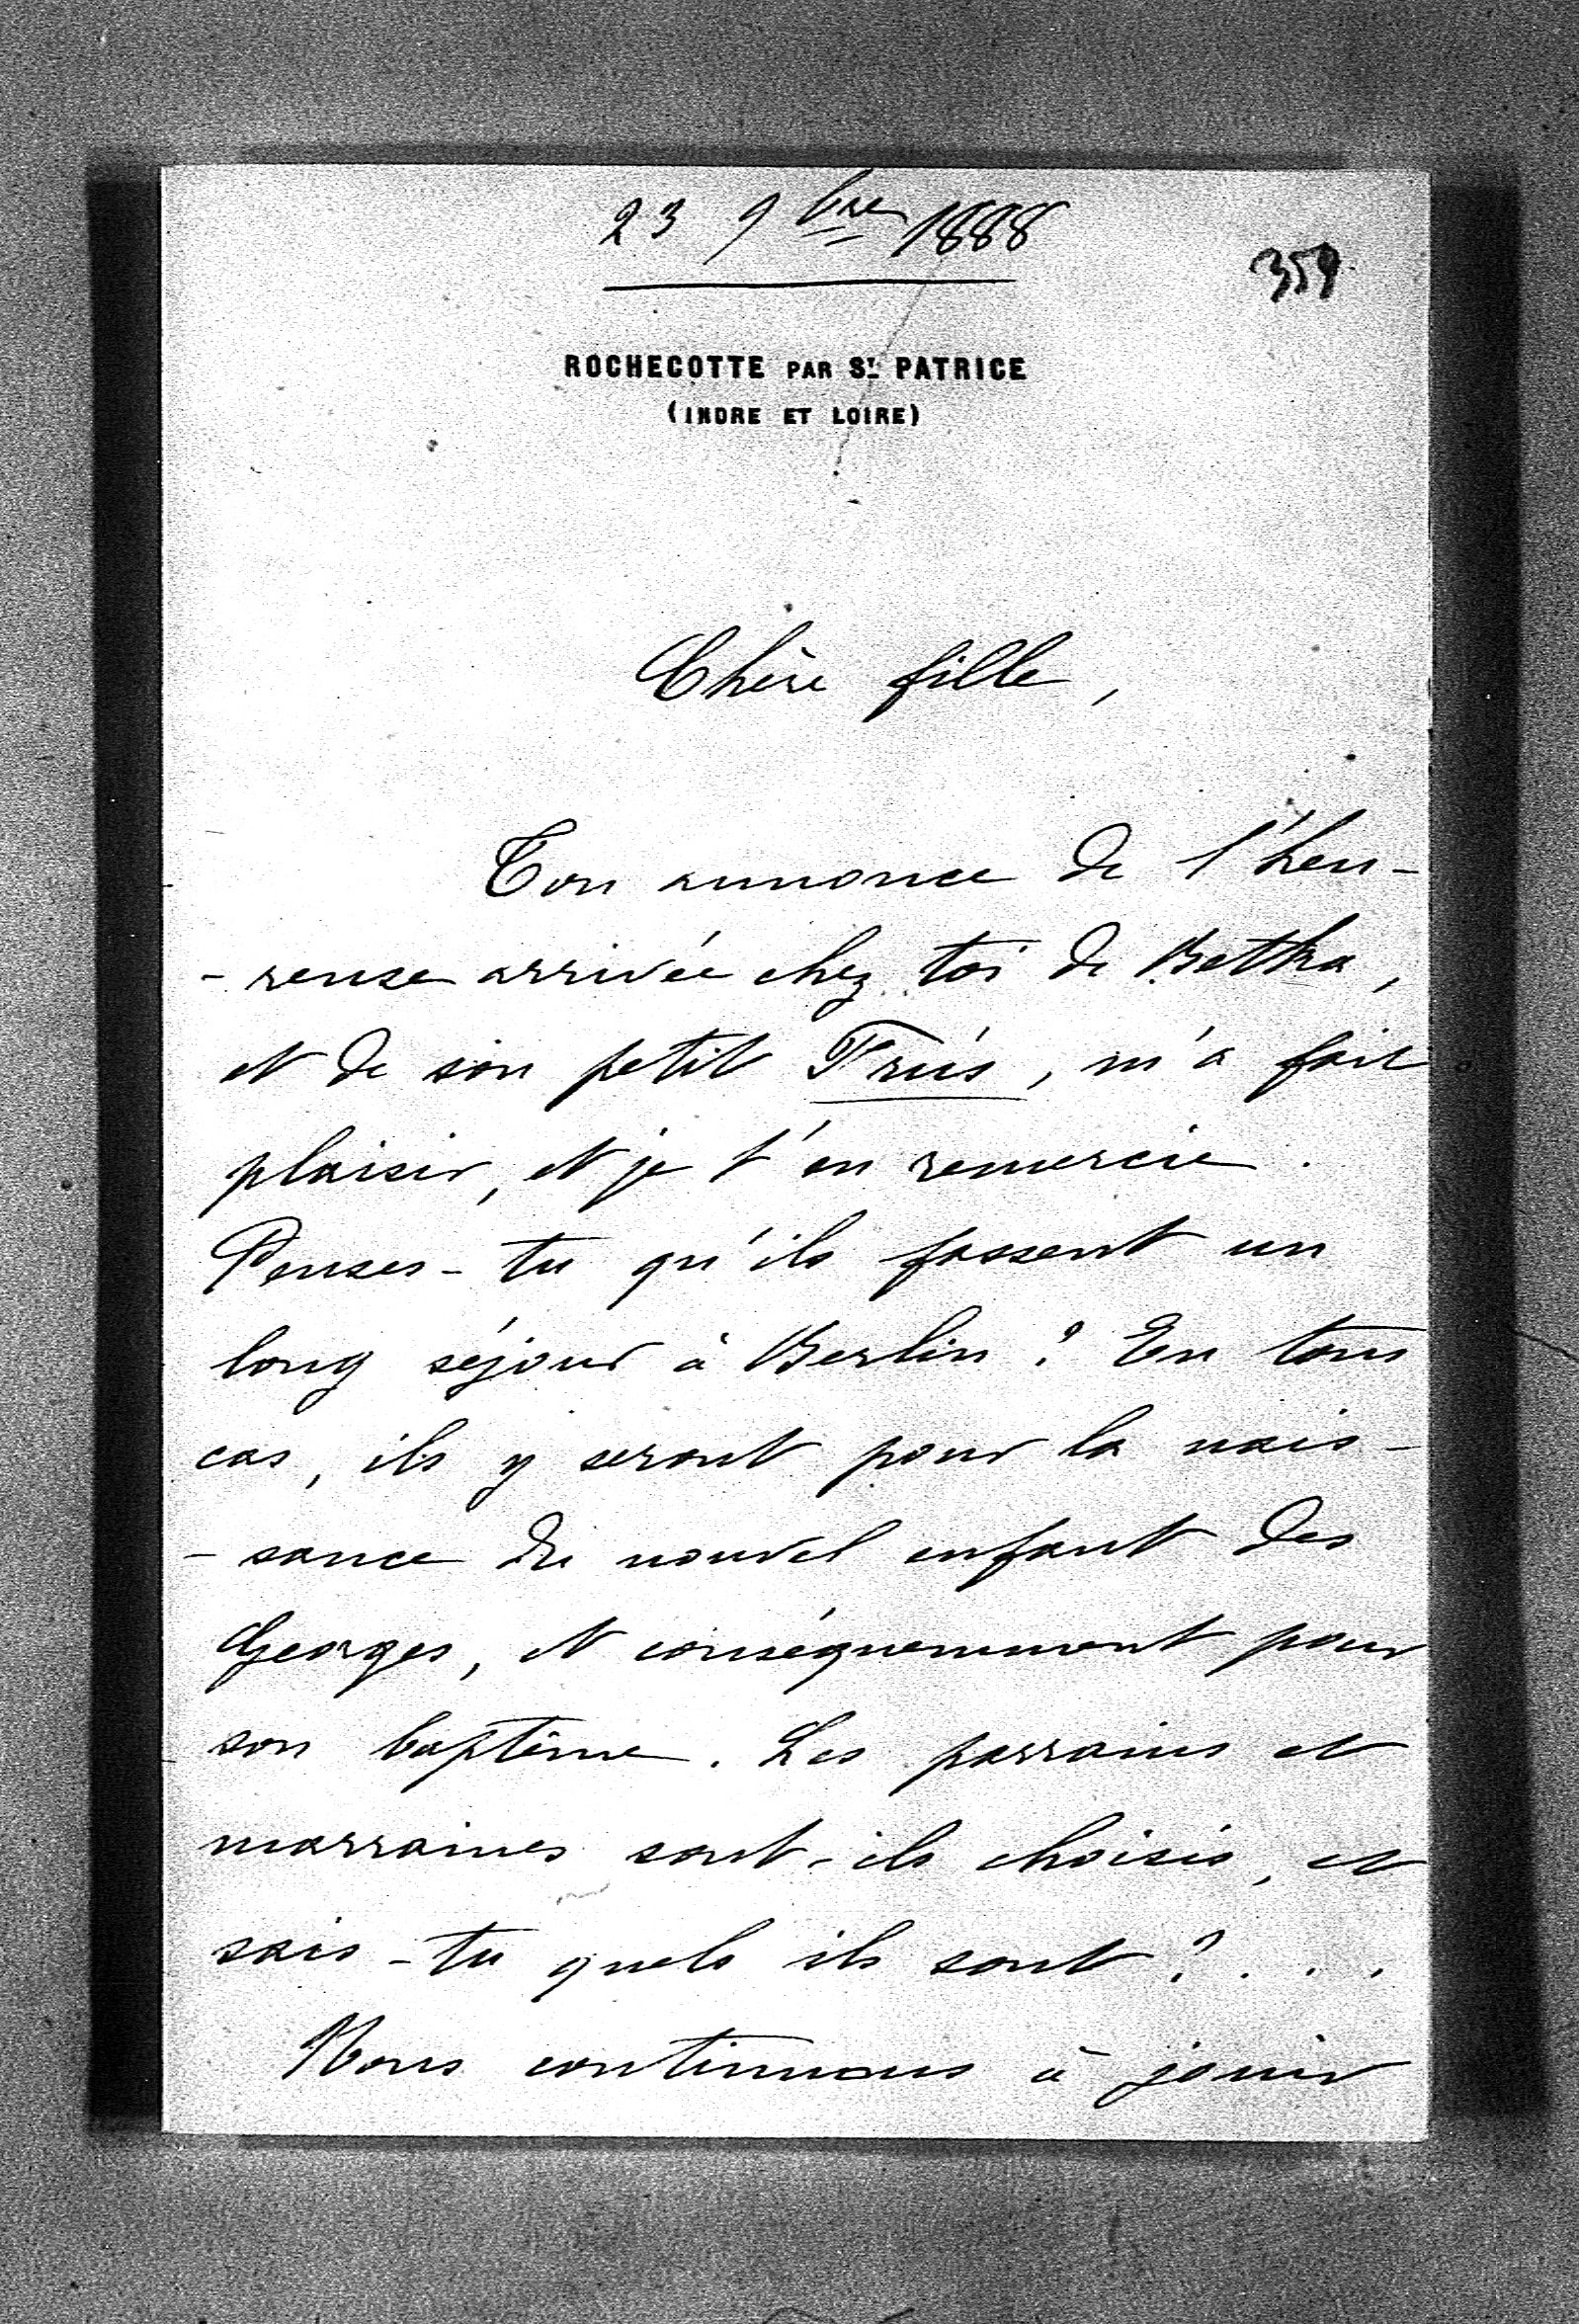 23 9bre 1888
359
ROCHECOTTE PAR ST. PATRICE
(INDRE ET LOIRE)
Chère fille,
Ton annonce de l'heu-
-reuse arrivée chez toi de Betka,
et de son petit Trüs, m'a fait
plaisir, et je t'en remercie.
Penses-tu qu'ils fassent un
long séjour à Berlin? En tous
cas, ils y seront pour la nais-
-sance du nouvel enfant des
Georges, et conséquemment pour
son baptême. Les parrains et
marraines sont-ils choisis, et
sais-tu quels ils sont?...
Nous continuons à jouir